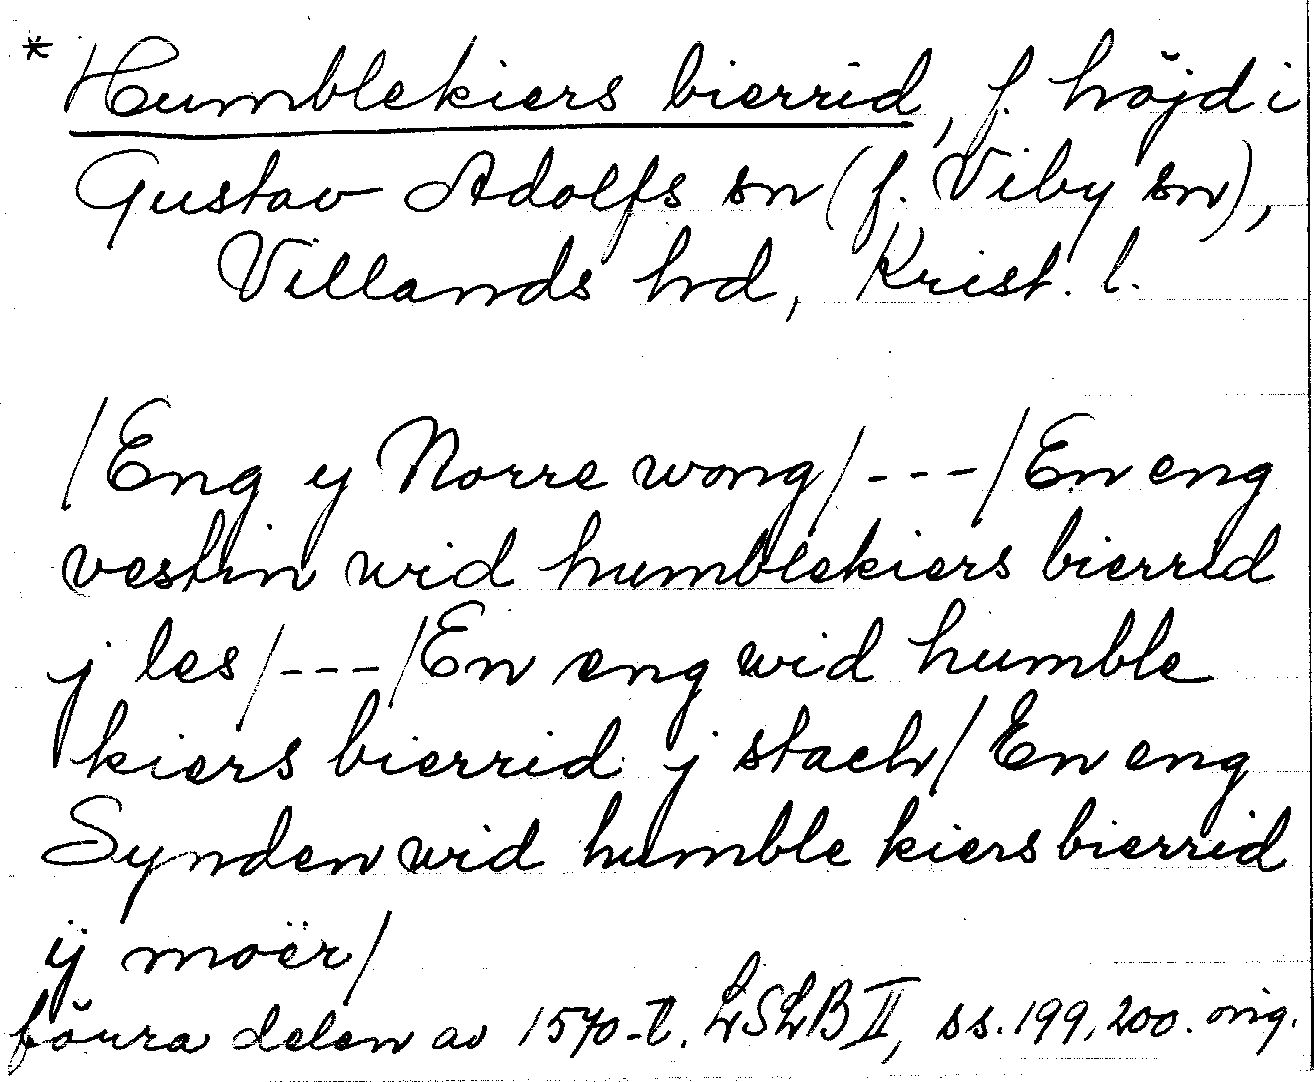 * Humblekiers bierrid, f. höjd i
Gustav Adolfs sn (f. Viby sn),
Villands hd, Krist. l.
/Eng y Norre wong/---/En eng
vestin wid humblekiers bierrid
j les/---/En eng wid humble
kiers bierrid j stach/En eng
Synden wid humble kiers bierrid
ÿ moër/
förra delen av 1570-t. LSLB II, ss. 199, 200. orig.